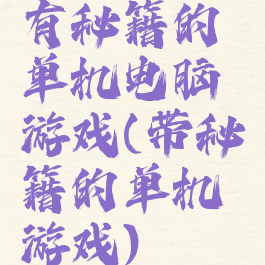 有秘籍的
单机电脑
游戏(带秘
籍的单机
游戏)